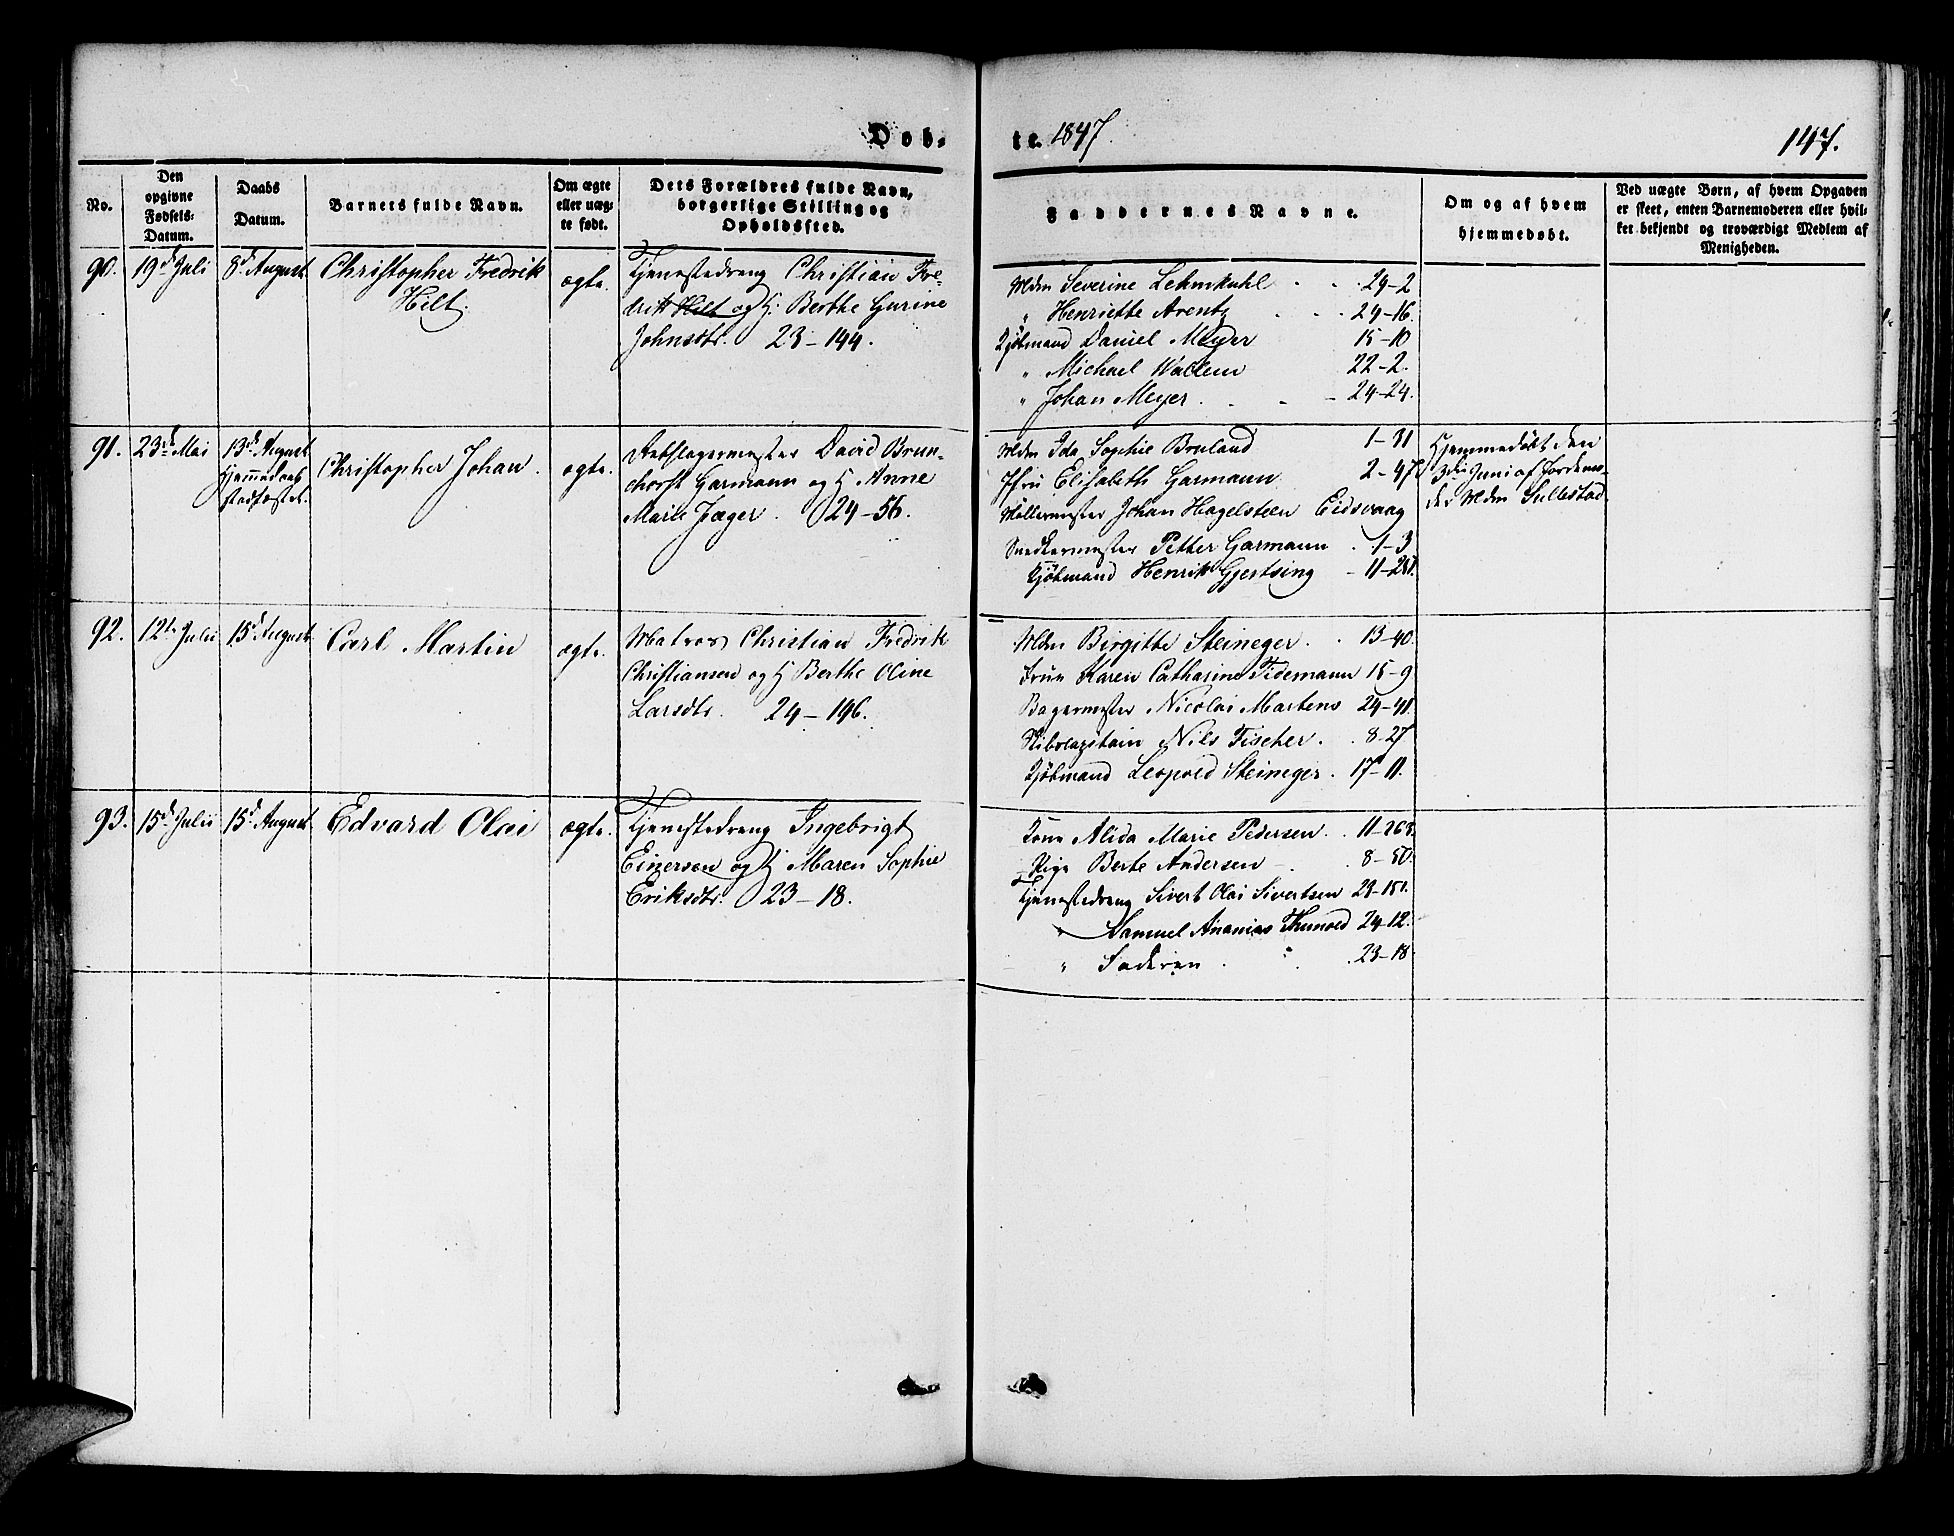 Døb-
te. 1847.
147.
No.
Den
opgivne
Fødsels-
Datum.
Daabs
Datum.
Barnets fulde Navn.
Om ægte
eller uæg-
te født.
Dets Forældres fulde Navn,
borgerlige Stilling og
Opholdssted.
Faddernes Navne.
Om og af hvem
hjemmedøbt.
Ved uægte Børn, af hvem Opgaven
er skeet, enten Barnemoderen eller hvil-
ket bekjendt og troværdigt Medlem af
Menigheden.
90.
19d Juli
8d August
Christopher Fredrik
Hilt.
ægte.
Tjenestedreng Christian Fre-
drik Hilt og H. Berthe Gurine
Johnsdtr. 23-144.
Mdm Severine Lehmkuhl 29-2
" Henriette Arentz 24-16.
Kjøbmand Daniel Meyer 15-10
" Michael Wallem 22-2.
" Johan Meyer 24-24.
91.
23d Mai
13d August
Hjemmedaab
stadfæstet.
Christopher Johan.
ægte.
Rebslagermester David Brun-
chorst Garmann og H Anne
Marie Jæger. 24-56.
Mdm Ida Sophie Bruland 1-31
Jfru Elisabeth Garmann 2-47.
Møllermester Johan Hagelsteen Eidsvaag
Snedkermester Petter Garmann 1-3
Kjøbmand Henrik Gjertsing 11-251.
Hjemmedøbt den
3die Juni af Jordemo-
der Mdm Sullestad
92.
12te Juli
15d August
Carl Martin
ægte.
Matros Christian Fredrik
Christiansen og H Berthe Oline
Larsdtr. 24-196.
Mdm Birgitte Steineger. 13-40.
Frue Karen Catharine Tidemann 15-9
Bagermester Nicolai Martens 24-41.
Skibscapitain Nils Fischer. 8-27
Kjøbmand Leopold Steineger. 17-11.
93.
15d Juli
15d August
Edvard Olai
ægte.
Tjenestedreng Ingebrigt
Einersen og H Maren Sophie
Eriksdtr. 23-18.
Kone Alida Marie Pedersen. 11-263.
Pige Berte Andersen 8-50.
Tjenestedreng Sivert Olai Sivertsen 23-151.
" Samuel Ananias Thunold 24-12.
" Faderen 23-18.